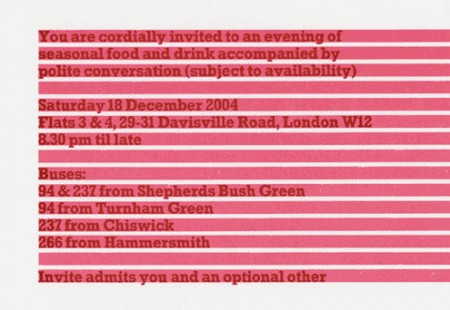 You are cordially invited to an evening of
seasonal food and drink accompanied by
polite conversation (subject to availability)
Saturday 18 December 2004
Flats 3 & 4, 29-31 Davisville Road, London W12
8.30 pm til late
Buses:
94 & 237 from Shepherds Bush Green
94 from Turnham Green
237 from Chiswick
266 from Hammersmith
Invite admits you and an optional other